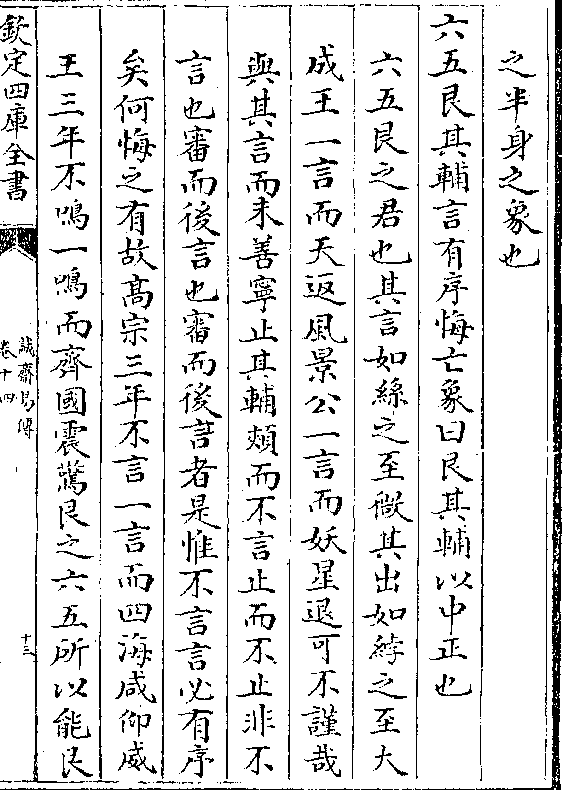 之半身之象也
六五艮其輔言有序悔亡象曰艮其輔以中正也
六五艮之君也其言如絲之至微其出如綍之至大
成王一言而天返風景公一言而妖星退可不謹哉
與其言而未善寧止其輔頰而不言止而不止非不
言也審而後言也審而後言者是惟不言言必有序
矣何悔之有故髙宗三年不言一言而四海咸仰威
王三年不鳴一鳴而齊國震驚艮之六五所以能艮
欽定四庫全書
誠齋易傳
卷十四
十三